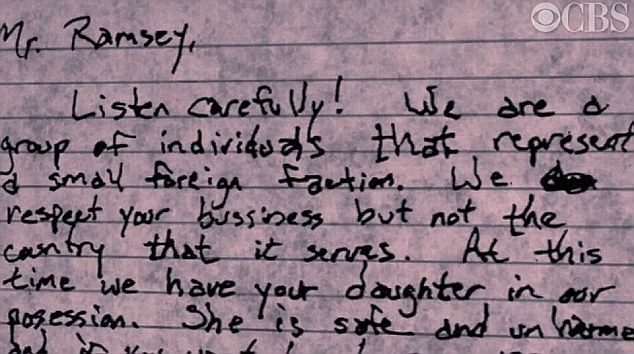 ©CBS
Mr. Ramsey,
Listen carefully! We are a
group of individuals that represent
a small foreign faction. We
respect your bussiness but not the
country that it serves. At this
time we have your daughter in our
posession. She is safe and unharme
and if you want